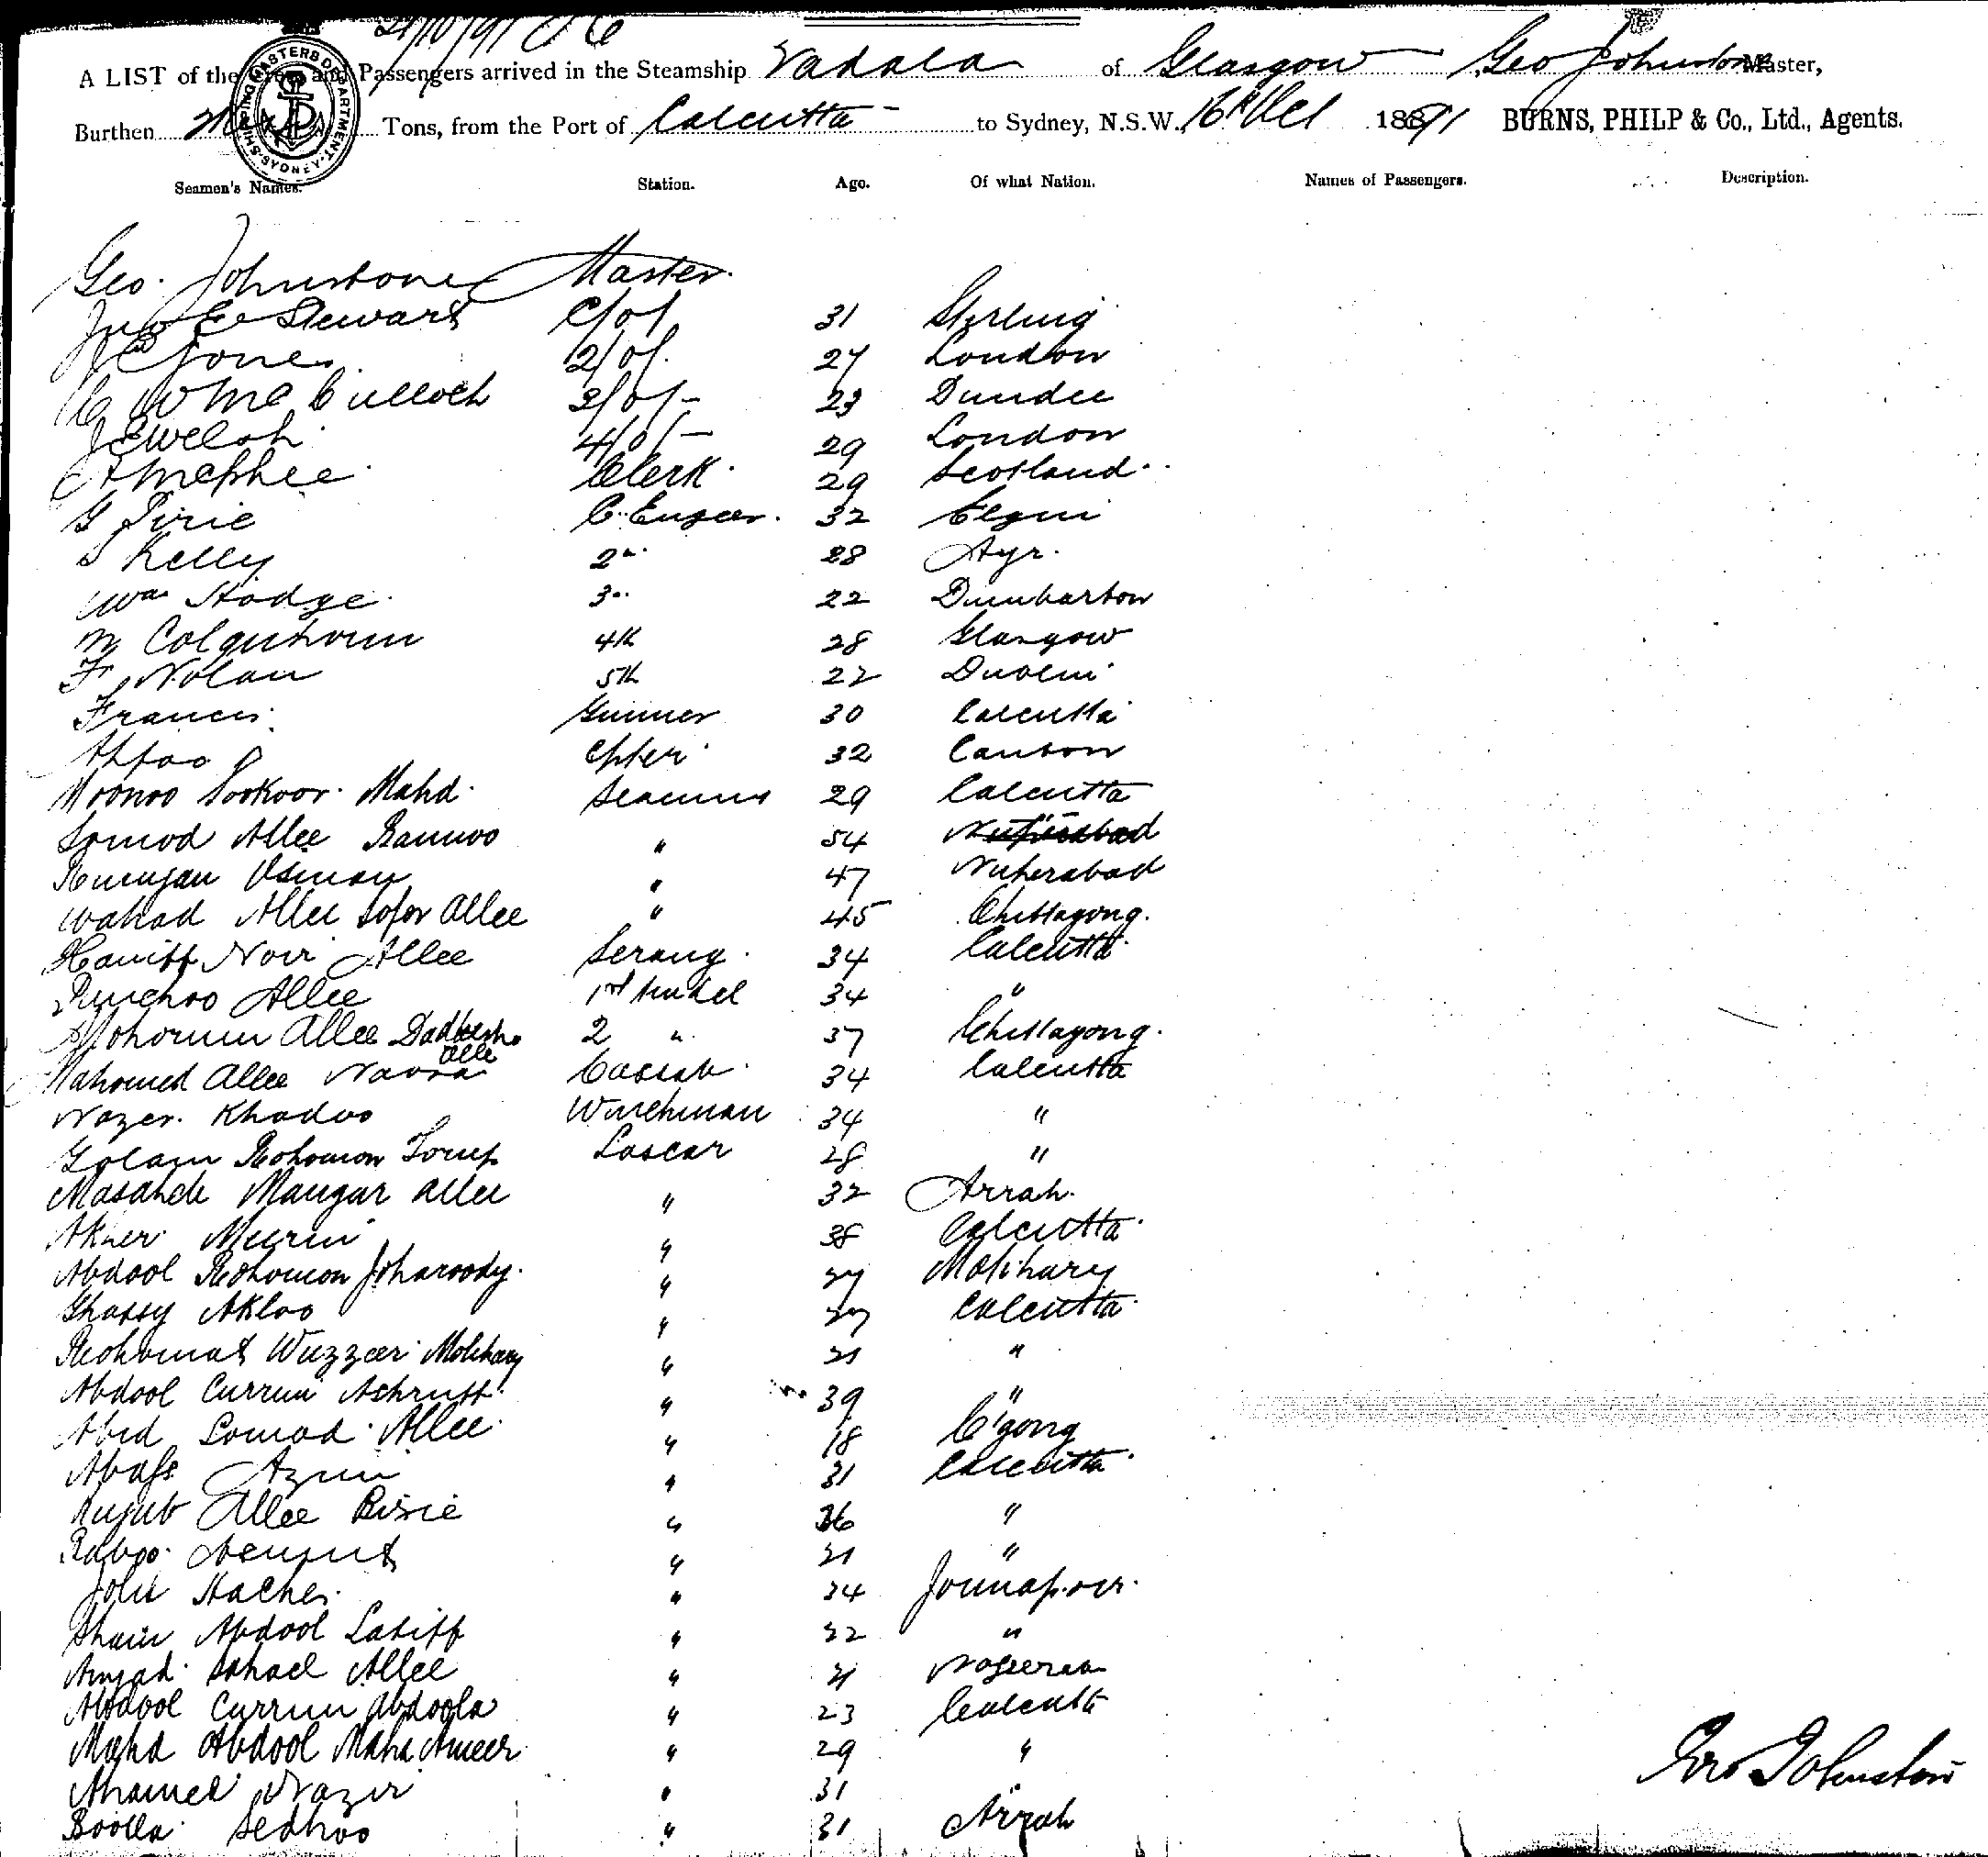 21/10/91
A LIST of the Crew and Passengers arrived in the Steamship Vadala of Glasgow Geo Johnstone Master,
Burthen Tons, from the Port of Calcutta to Sydney, N.S.W., 16th Oct 1891 BURNS, PHILP & Co., Ltd., Agents.
SHIPPING MASTERS DEPARTMENT SYDNEY
Seamen's Names. Station. Age. Of what Nation. Names of Passengers. Description.
Geo. Johnstone Master.
Jno E Stewart C/of 31 Sterling
Jones 2/of. 27 London
W McCulloch 3/of- 23 Dundee
J E Welsh 4/of- 29 London
A McPhee Clerk. 29 Scotland..
G Pirie C. Engeer. 32 Elgin
S Kelly 2nd 28 Ayr.
Wm Hodge. 3. 22 Dumbarton
M Colquhoun 4th 28 Glasgow
F Nolan 5th 22 Dublin
Francis. Gunner 30 Calcutta
32 Canton
Moonoo Sookoor. Mahd. 29 Calcutta
Somod Allee " 54
Ramjan Osman " 47 Nuherabad
Wahad Allee Sofor Allee " 45 Chittagong.
Haniff Noor Allee Serang. 34 Calcutta.
Punchoo Allee 1st Tindel 34 "
Mohorum Allee 2 " 37 Chittagong.
Mahomed Allee Cassab. 34 Calcutta
Nazer. Khadoo Winchman 34 "
Golam Rohomon Lascar 28 "
Mungur Allee " 32 Arrah.
" 38 Calcutta.
Abdool Rohomon Joharoody. " 27 Motihary
Ghassy Akloo " 27 Calcutta.
Rohomat Wuzzeer Motihary " 21 "
Abdool Currim Ashruff. " 39 "
Abid Somod. Allee. " 18 C'gong
Abass Azim " 31 Calcutta.
Rujub Allee " 36 "
Raboo. " 21 "
" 24
Abdool Latiff " 22 "
Amjad. Allee "
Abdool Currim Abdoola " 23 Calcutta
Mahd Abdool Mahd Ameer " 29 "
Ahamed Nazir " 31 "
Boolla. Sedhoo " 31 Arrah
Geo Johnston